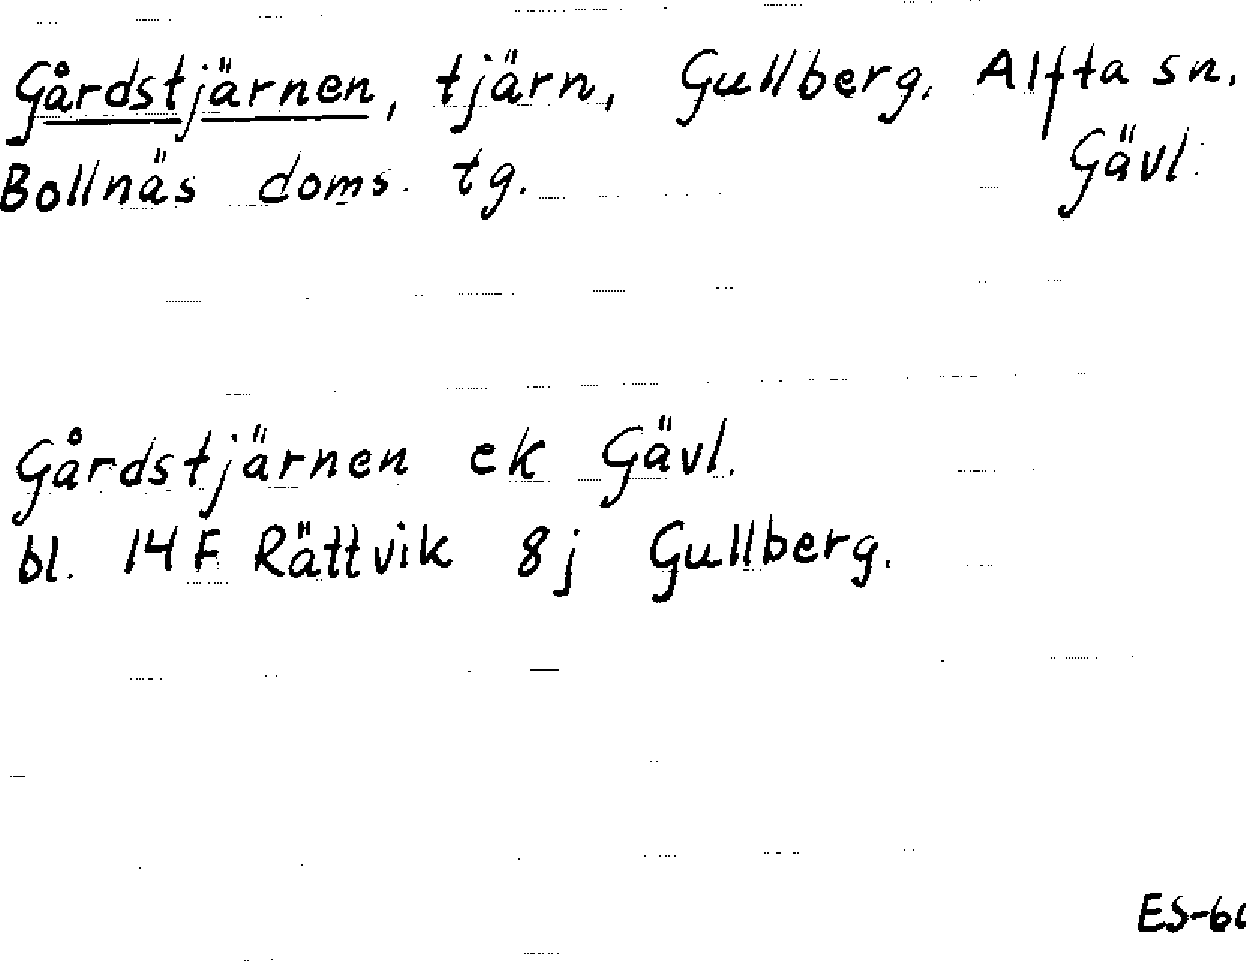 Gårdstjärnen, tjärn, Gullberg. Alfta sn.
Bollnäs doms. tg. Gävl.
Gårdstjärnen ek Gävl.
bl. 14 F Rättvik 8j Gullberg.